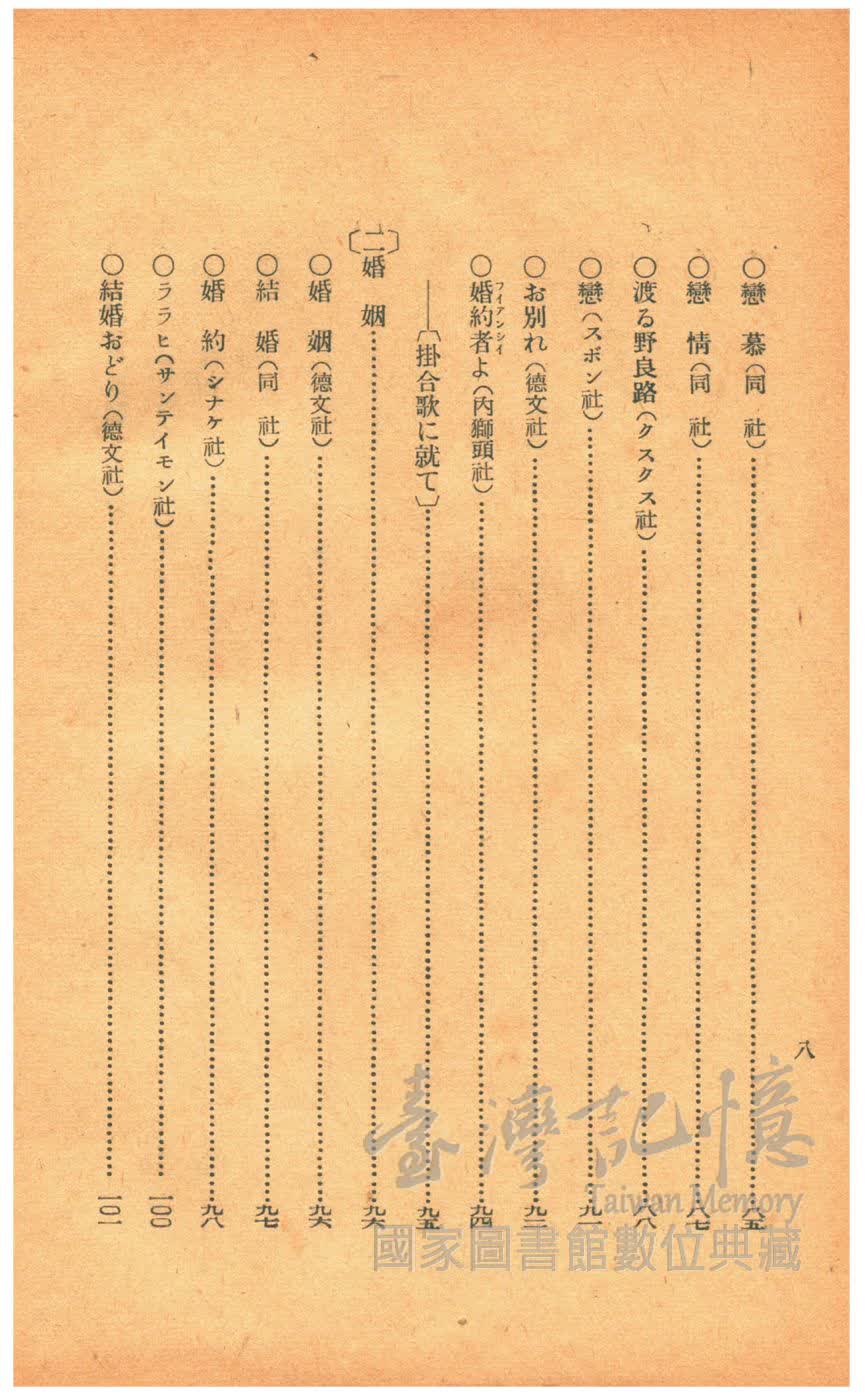 八
〇戀　慕（同　社）……………八五
〇戀　情（同　社）……………八七
〇渡る野良路（クスクス社）……………八八
〇戀（スボン社）……………九一
〇お別れ（德文社）……………九三
〇婚約者よ（內獅頭社）……………九四
フイアンシイ
——〔掛合歌に就て〕……………九五
〔二〕婚　姻……………九六
〇婚　姻（德文社）……………九六
〇結　婚（同　社）……………九七
〇婚　約（シナケ社）……………九八
〇ララヒ（サンテイモン社）……………一〇〇
〇結婚おどり（德文社）……………一〇一
臺灣記憶
Taiwan Memory
國家圖書館數位典藏